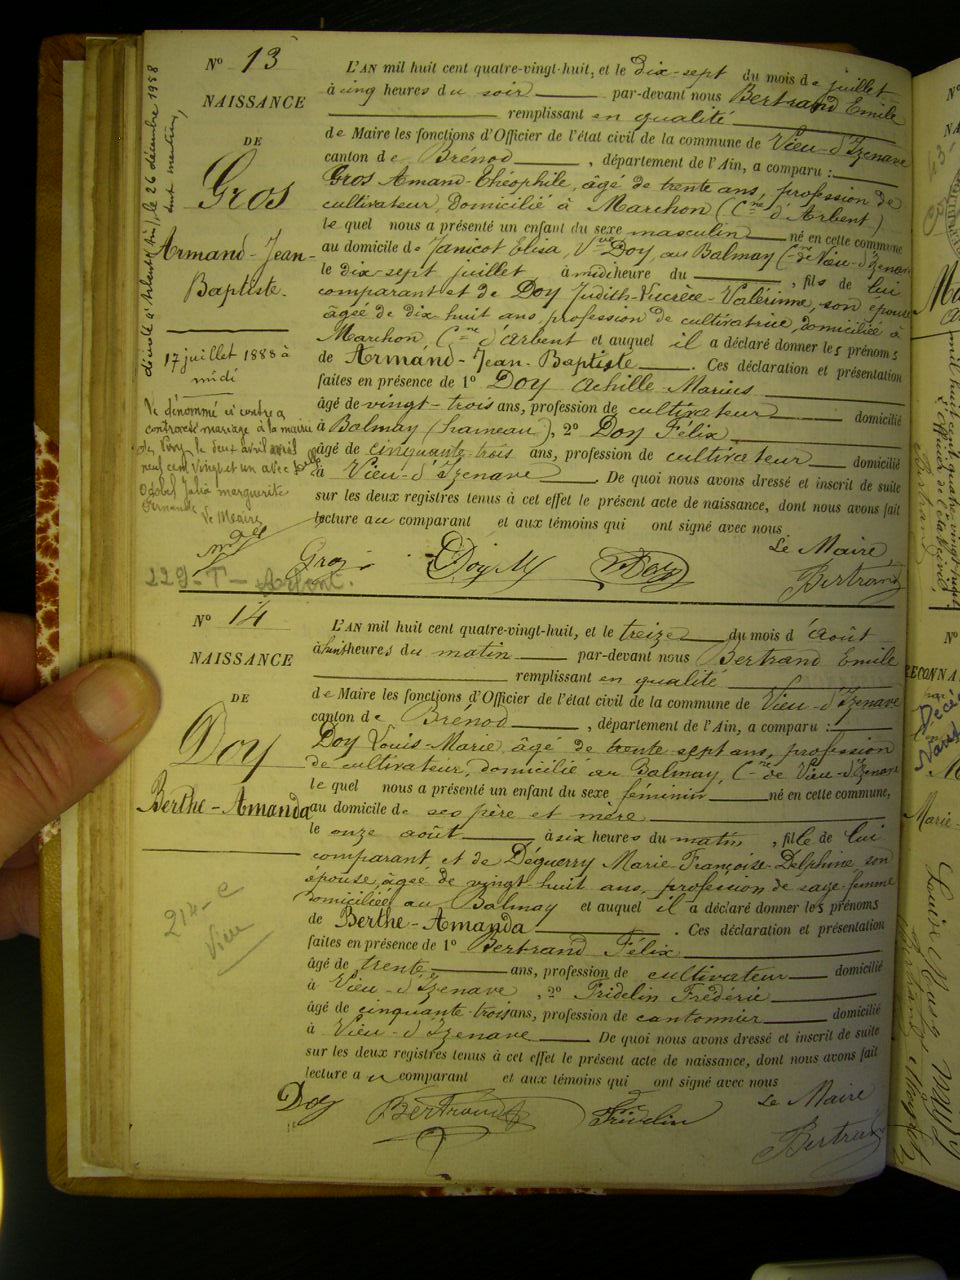 N° 13
NAISSANCE
DE
Gros
Armand-Jean-
Baptiste.
17 juillet 1888 à
midi
Le dénommé ci contre a
contracté mariage à la mairie
de le deux avril
neuf cent vingt et un avec
Odobel Julia marguerite
Fernande
Le Maire
décédé à Arbent (Ain), le 26 décembre 1958
dont mention,
229-T- Arbent.
L'AN mil huit cent quatre-vingt-huit, et le dix-sept du mois de juillet
à cinq heures du soir par-devant nous Bertrand Emile
remplissant en qualité
de Maire les fonctions d'Officier de l'état civil de la commune de Vieu-d'Izenave
canton de Brénod, département de l'Ain, a comparu :
Gros Amand-Théophile, âgé de trente ans, profession de
cultivateur, domicilié à Marchon (Cne d'Arbent)
le quel nous a présenté un enfant du sexe masculin né en cette commune
au domicile de Janicot Elisa, Vve Doy, au Balmay (Cne de Vieu-d'Izenave
le dix sept juillet, à midi heure du, fils de lui
comparant et de Doy Judith-Lucrèce-Valérinne, son épouse
âgée de dix huit ans, profession de cultivatrice, domiciliée à
Marchon, Cne d'Arbent et auquel il a déclaré donner les prénoms
de Armand-Jean-Baptiste. Ces déclaration et présentation
faites en présence de 1° Doy Achille Marius
âgé de vingt-trois ans, profession de cultivateur domicilié
à Balmay (hameau), 2° Doy Félix
âgé de cinquante-trois ans, profession de cultivateur domicilié
à Vieu-d'Izenave. De quoi nous avons dressé et inscrit de suite
sur les deux registres tenus à cet effet le présent acte de naissance, dont nous avons fait
lecture au comparant et aux témoins qui ont signé avec nous
Le Maire
Gros Doy M Doy Bertrand
N° 14
NAISSANCE
DE
Doy
Berthe-Amanda
214-C
Vieu
L'AN mil huit cent quatre-vingt-huit, et le treize du mois d'Août
à huit heures du matin par-devant nous Bertrand Emile
remplissant en qualité
de Maire les fonctions d'Officier de l'état civil de la commune de Vieu-d'Izenave
canton de Brénod, département de l'Ain, a comparu :
Doy Louis-Marie, âgé de trente sept ans, profession
de cultivateur, domicilié au Balmay, Cne de Vieu-d'Izenave
le quel nous a présenté un enfant du sexe féminin né en cette commune,
au domicile de ses père et mère
le onze août à six heures du matin, fille de lui
comparant et de Déguerry Marie Françoise-Delphine son
épouse, âgée de vingt huit ans, profession de sage-femme
domiciliée au Balmay et auquel il a déclaré donner les prénoms
de Berthe-Amanda. Ces déclaration et présentation
faites en présence de 1° Bertrand Félix
âgé de trente ans, profession de cultivateur domicilié
à Vieu-d'Izenave, 2° Fridelin Frédéric
âgé de cinquante-trois ans, profession de cantonnier domicilié
à Vieu-d'Izenave De quoi nous avons dressé et inscrit de suite
sur les deux registres tenus à cet effet le présent acte de naissance, dont nous avons fait
lecture au comparant et aux témoins qui ont signé avec nous
Le Maire
Doy Bertrand Fridelin Bertrand